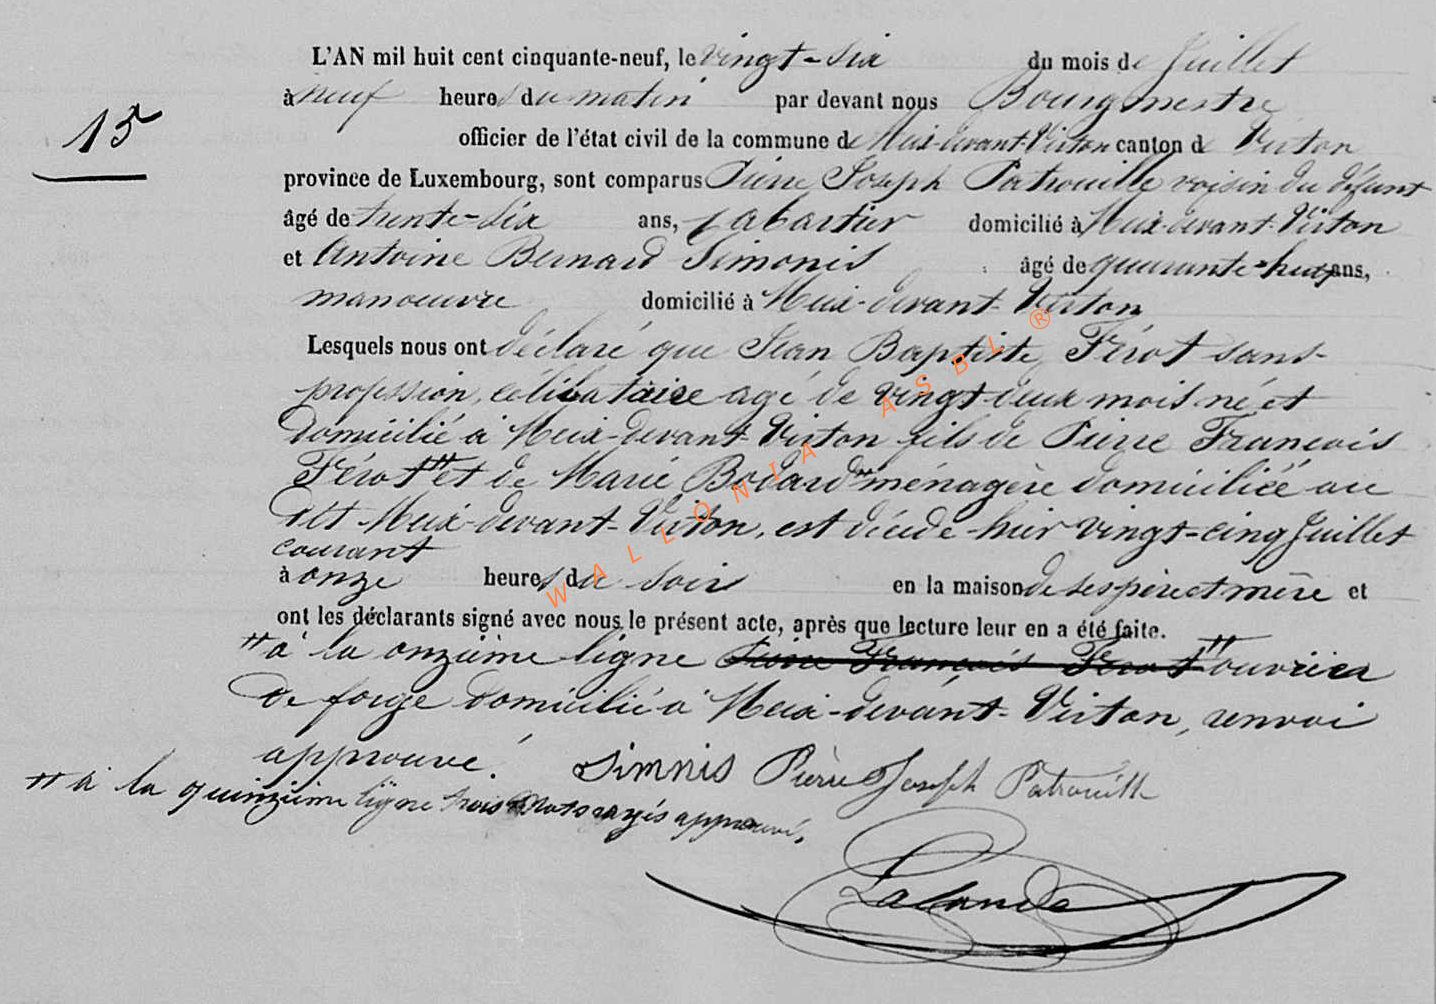 L'AN mil huit cent cinquante-neuf, le vingt-six du mois de Juillet
à neuf heures du matin par devant nous Bourgmestre
15
officier de l'état civil de la commune de Meix-devant-Virton canton de Virton
province de Luxembourg, sont comparus Pierre Joseph Patrouille voisin du défunt
âgé de trente-six ans, cabartier domicilié à Meix-devant-Virton
et Antoine Bernard Simonis âgé de quarante-huit ans,
manoeuvre domicilié à Meix-devant-Virton
Lesquels nous ont déclaré que Jean Baptiste Férot sans
profession, célibataire agé de vingt-deux mois né et
domicilié à Meix-devant-Virton fils de Pierre François
Férot et de Marie Bodard ménagère domiciliée au
dit Meix-devant-Virton, est décédé hier vingt-cinq Juillet
courant
à onze heures du soir en la maison de ses père et mère et
ont les déclarants signé avec nous le présent acte, après que lecture leur en a été faite.
" à la onzième ligne Pierre François Férot " ouvrier
de forge domicilié à Meix-devant-Virton, renvoi
approuvé.
Simnis Pierre Joseph Patrouille
" à la quinzième ligne trois mots rayés approuvé.
Lalande
WALLONIA ASBL ®